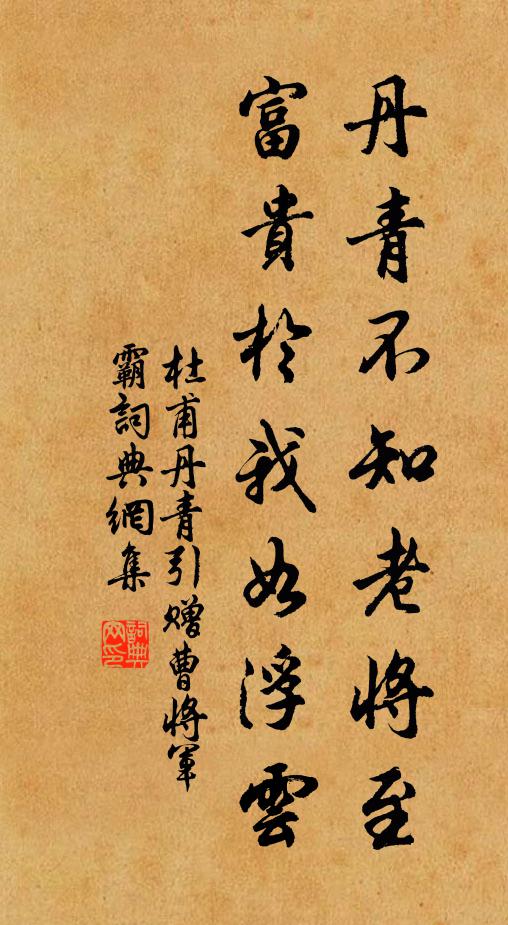 丹青不知老將至
富貴於我如浮雲
杜甫丹青引贈曹將軍
霸詞典網集
詞典
网印